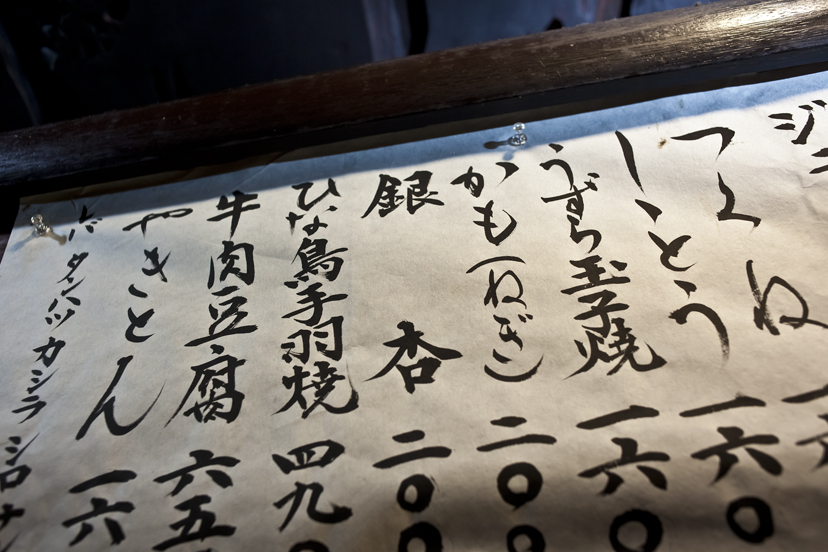 ジ
つくね 一
しゝとう 一六〇
うずら玉子焼 一六〇
かも(ねぎ) 二〇〇
銀杏 二〇〇
ひな鳥手羽焼 四九〇
牛肉豆腐 六五
やきとん 一六
タン ハツ カシラ シロ